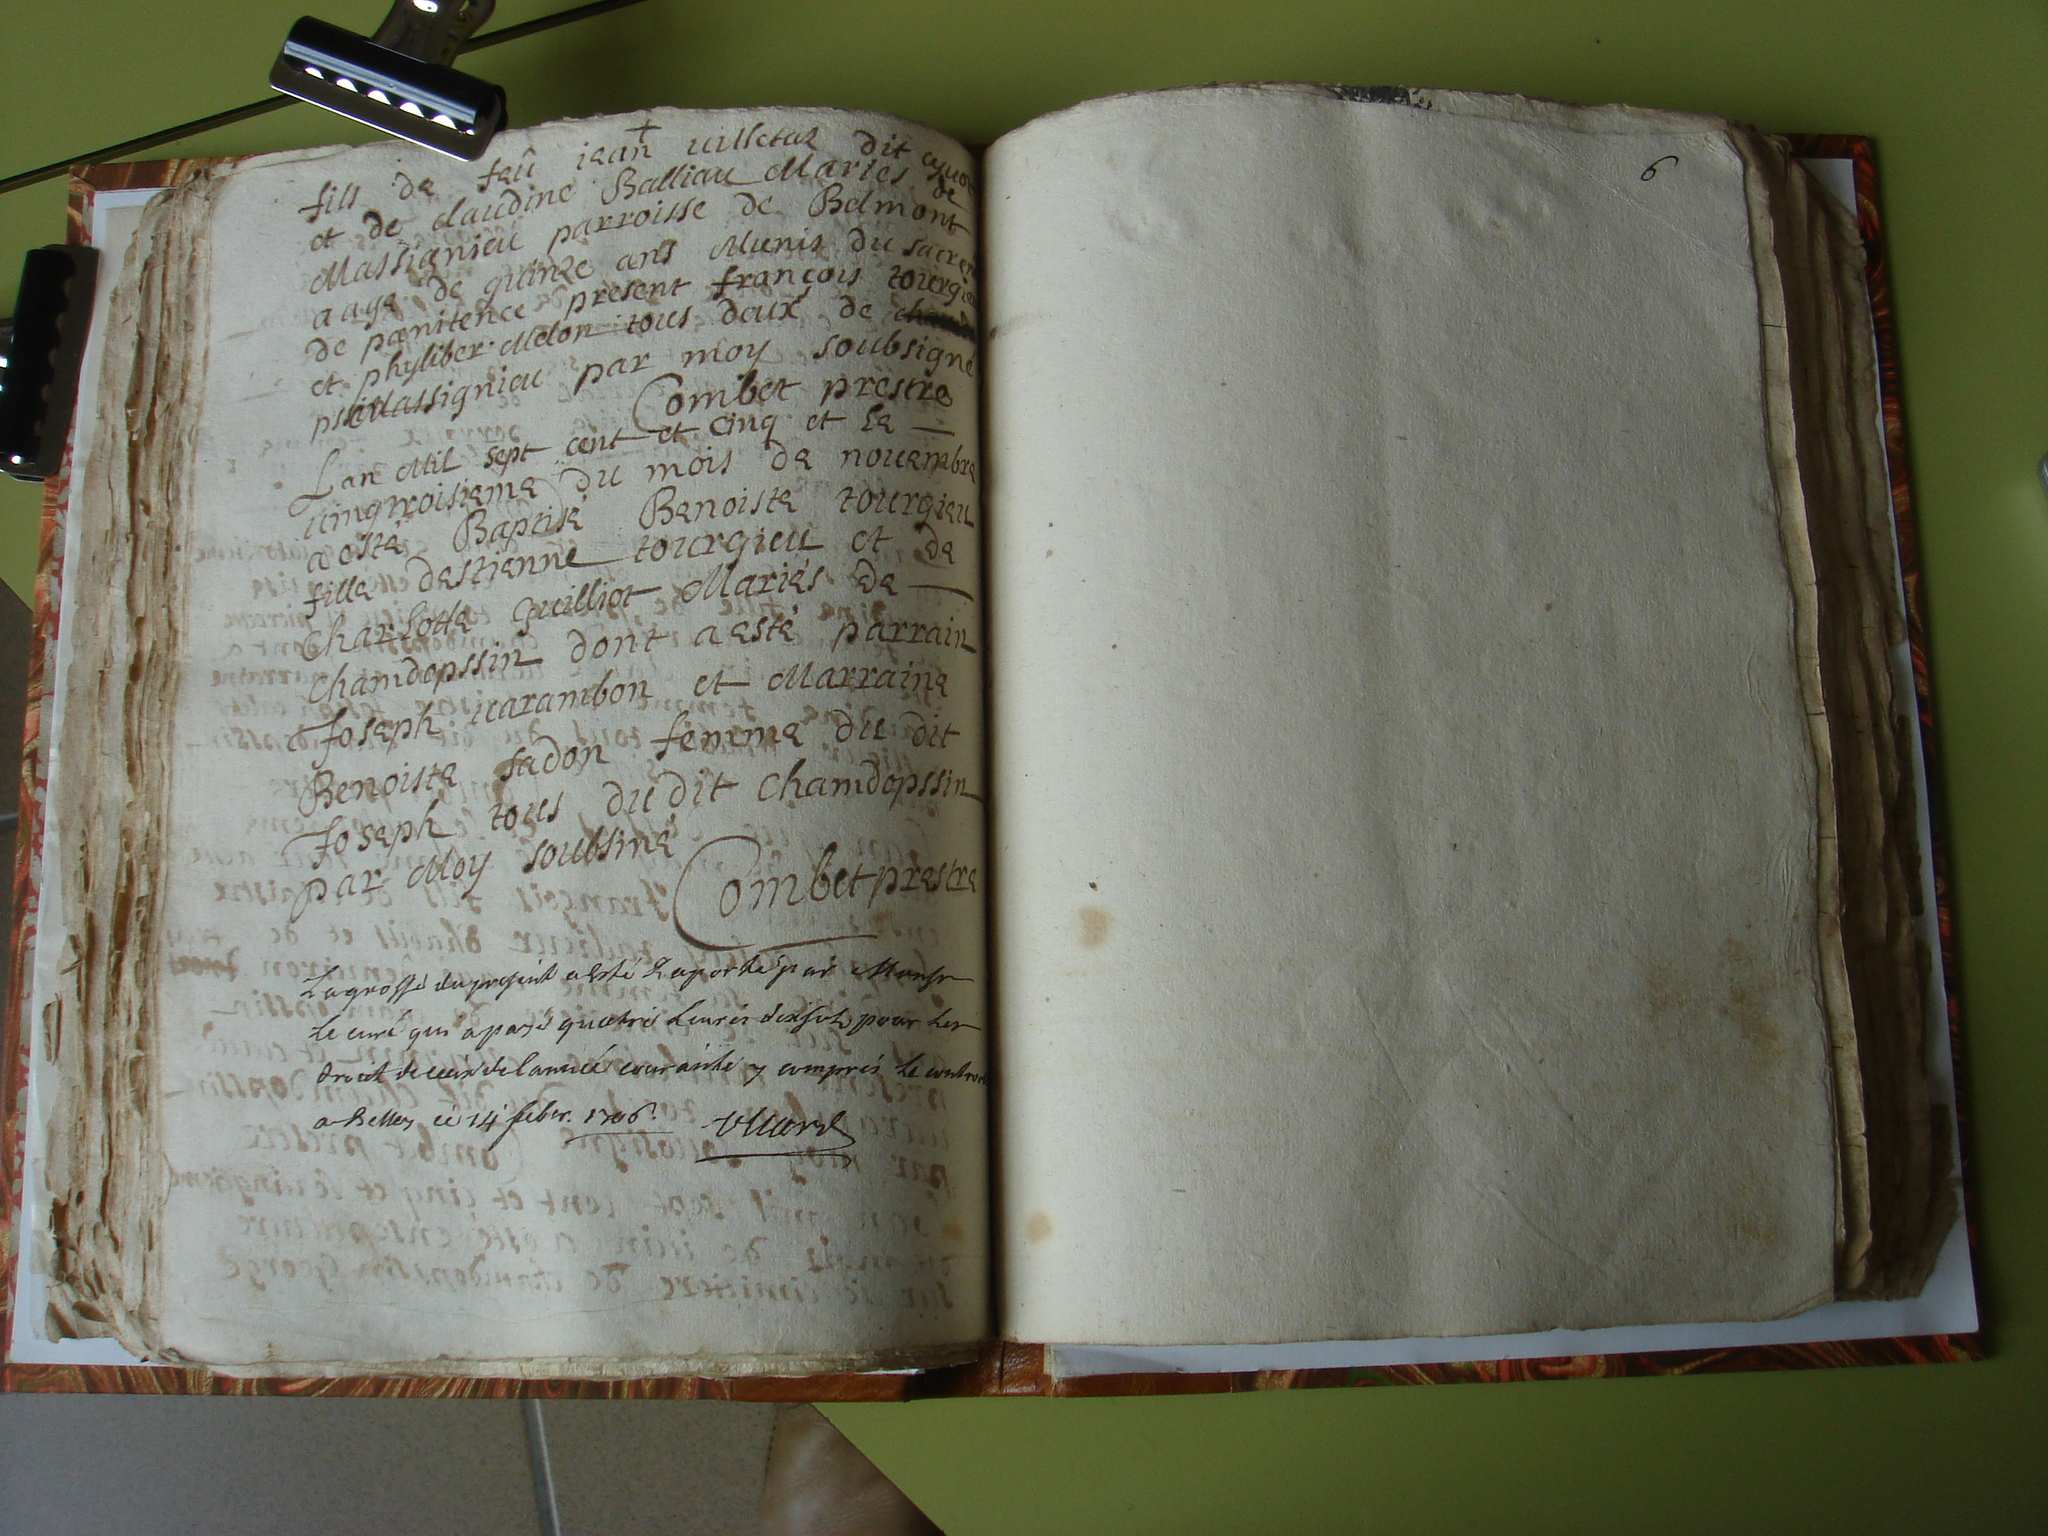 fils de feû iean villetaz dit
et de claudine Balliau Mariés de
Massignieu parroisse de Belmont
aage de quinze ans Munis du sacrem
de pœnitence present françois tourgieu
et phyliber Melon tous deux de
Massignieu par moy soubsigné
Combet prestre
Lan Mil sept cent et cinq et le
uingtroisieme du mois de nouembre
a esté Baptisé Benoiste tourgieu
fille destienne tourgieu et de
Charlotte Guilliot Mariés de
Chamdopssin dont a esté parrain
Joseph uarambon et Marraine
Benoiste fadon femme du dit
Joseph tous du dit Chamdopssin
par Moy soubsiné
Combet prestre
La grosse du present a esté Raporté par Monsr
Le curé qui a payé quattre Liures dix sols pour les
droit de ceux de lannée courante y compris Le
a Belley ce 14 feber. 1706.
6